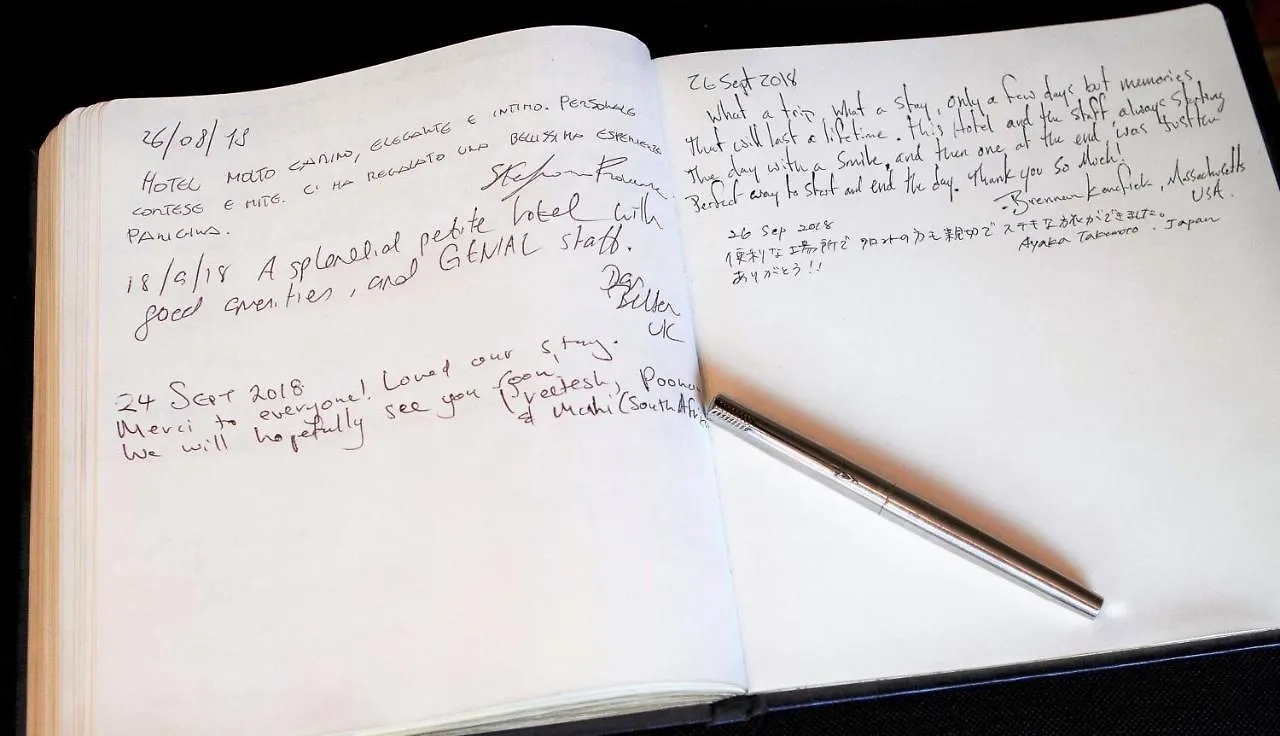 26/08/18
HOTEL MOLTO CARINO, ELEGANTE E INTIMO. PERSONALE
CORTESE E MITE. CI HA REGALATO UNA BELLISSIMA ESPERIENZA
PARIGINA.
18/9/18 A splendid petite hotel with
good amenities, and GENIAL staff.
Dan
UK
24 SEPT 2018
Merci to everyone! Loved our stay.
We will hopefully see you soon,
Preetesh, Poonam
& Mahi (South Afri
26 Sept 2018
What a trip, what a stay, only a few days but memories
that will last a lifetime. This Hotel and the staff always starting
the day with a smile, and then one at the end, was just the
Perfect way to start and end the day. Thank you so Much!
- Brennan , Massachusetts
USA.
26 Sep 2018
便利な場所でフロントの方も親切でステキな旅ができました。
ありがとう!!
Ayaka Takemoto. Japan